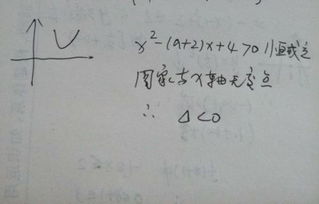 x²-(a+2)x+4>0恒成立
图象与x轴无交点
∴ Δ<0